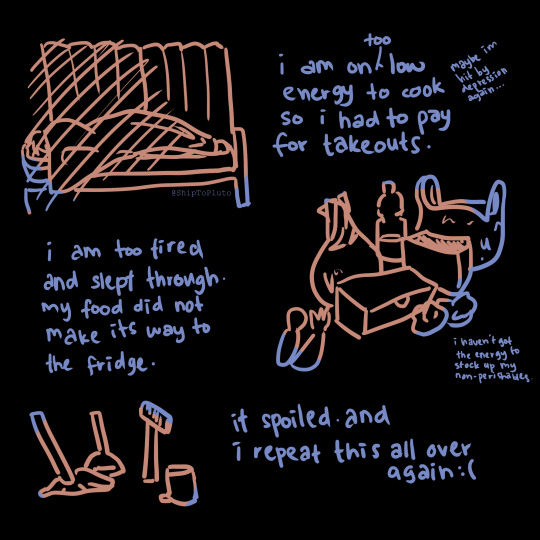 i am on too low
energy to cook
so i had to pay
for takeouts.
maybe im
hit by
depression
again...
@ShipToPluto
i am too tired
and slept through.
my food did not
make its way to
the fridge.
i haven't got
the energy to
stock up my
non-perishables.
it spoiled. and
i repeat this all over
again :(